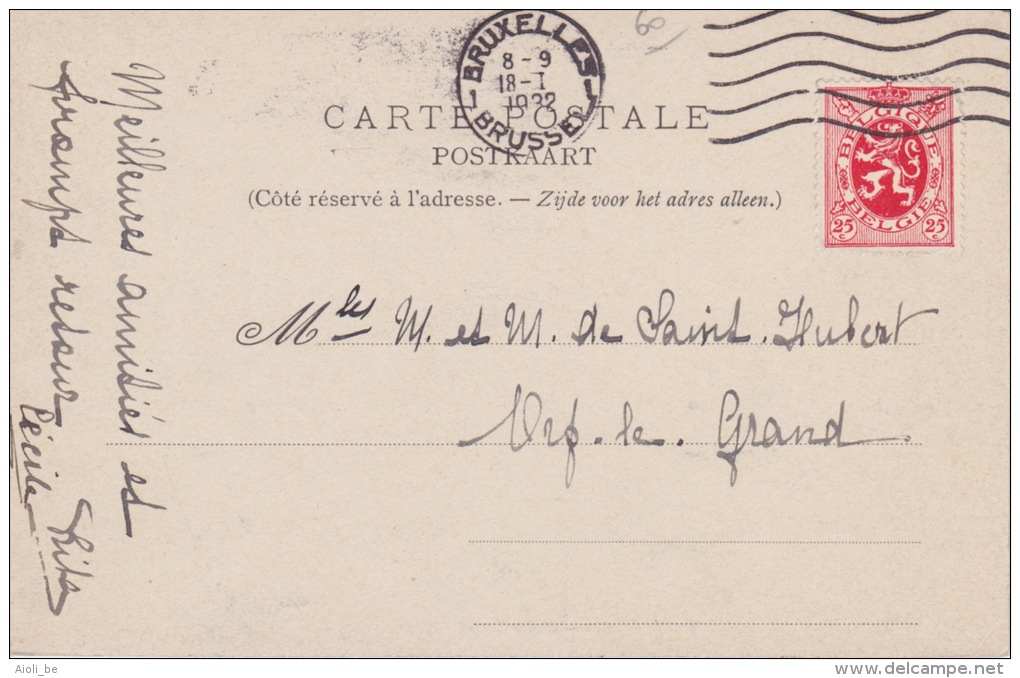 BRUXELLES
8 - 9
18 - I
1932
BRUSSEL
1 1
60
CARTE POSTALE
POSTKAART
(Côté réservé à l'adresse. — Zijde voor het adres alleen.)
BELGIQUE
BELGIE
25 c
25 c
Mles M. et M. de Saint. Hubert
Orp. le. Grand
Meilleures amitiés et
prompt retour
Cécile Rita
Aioli_be
delcampe.net